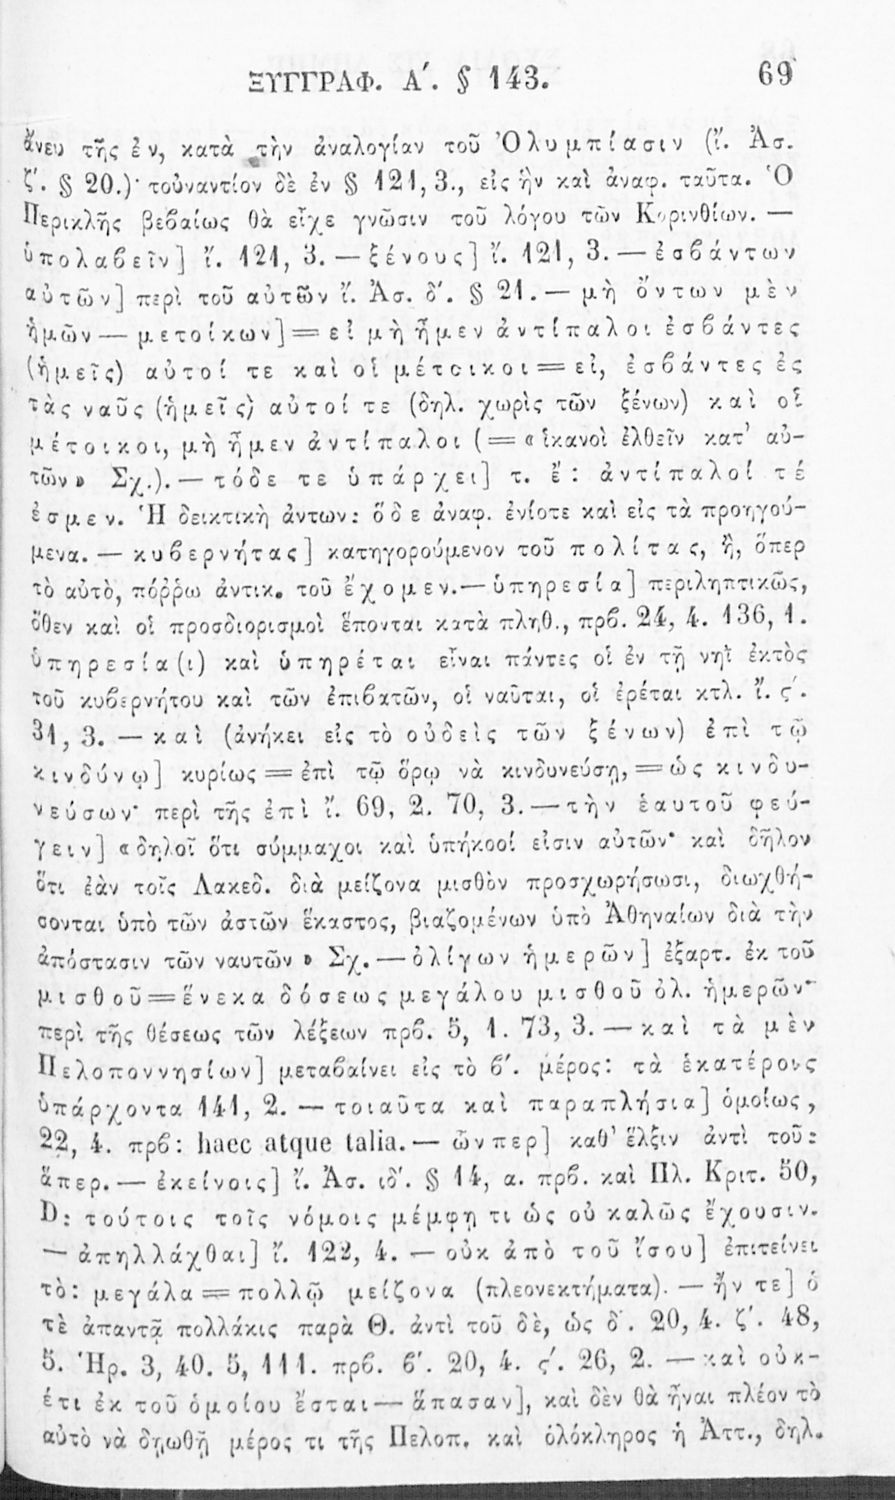 ΞΥΓΓΡΑΦ. Α΄. § 143. 69
ἄνευ τῆς ἐν, κατὰ τὴν ἀναλογίαν τοῦ Ὀλυμπίασιν (ἴ. Ἀσ.
ζ΄. § 20.)· τοὐναντίον δὲ ἐν § 121, 3., εἰς ἣν καὶ ἀναφ. ταῦτα. Ὁ
Περικλῆς βεβαίως θὰ εἶχε γνῶσιν τοῦ λόγου τῶν Κορινθίων. —
ὑπολαβεῖν] ἴ. 121, 3. — ξένους] ἴ. 121, 3. — ἐσβάντων
αὐτῶν] περὶ τοῦ αὐτῶν ἴ. Ἀσ. δ΄. § 21. — μὴ ὄντων μὲν
ἡμῶν — μετοίκων] = εἰ μὴ ἦμεν ἀντίπαλοι ἐσβάντες
(ἡμεῖς) αὐτοί τε καὶ οἱ μέτοικοι = εἰ, ἐσβάντες ἐς
τὰς ναῦς (ἡμεῖς) αὐτοί τε (δηλ. χωρὶς τῶν ξένων) καὶ οἱ
μέτοικοι, μὴ ἦμεν ἀντίπαλοι (= «ἱκανοὶ ἐλθεῖν κατ' αὐ-
τῶν» Σχ.). — τόδε τε ὑπάρχει] τ. ἔ: ἀντίπαλοί τέ
ἐσμεν. Ἡ δεικτικὴ άντων: ὅδε ἀναφ. ἐνίοτε καὶ εἰς τὰ προηγού-
μενα. — κυβερνήτας] κατηγορούμενον τοῦ πολίτας, ἢ, ὅπερ
τὸ αὐτὸ, πόῤῥω ἀντικ. τοῦ ἔχομεν. — ὑπηρεσία] περιληπτικῶς,
ὅθεν καὶ οἱ προσδιορισμοὶ ἕπονται κατὰ πληθ., πρβ. 24, 4. 136, 1.
ὑπηρεσία(ι) καὶ ὑπηρέται εἶναι πάντες οἱ ἐν τῇ νηῒ ἐκτὸς
τοῦ κυβερνήτου καὶ τῶν ἐπιβατῶν, οἱ ναῦται, οἱ ἐρέται κτλ. ἴ. ς΄.
31, 3. — καὶ (ἀνήκει εἰς τὸ οὐδεὶς τῶν ξένων) ἐπὶ τῷ
κινδύνῳ] κυρίως = ἐπὶ τῷ ὅρῳ νὰ κινδυνεύσῃ, = ὡς κινδυ-
νεύσων· περὶ τῆς ἐπὶ ἴ. 69, 2. 70, 3. — τὴν ἑαυτοῦ φεύ-
γειν] «δηλοῖ ὅτι σύμμαχοι καὶ ὑπήκοοί εἰσιν αὐτῶν· καὶ δῆλον
ὅτι ἐὰν τοῖς Λακεδ. διὰ μείζονα μισθὸν προσχωρήσωσι, διωχθή-
σονται ὑπὸ τῶν ἀστῶν ἕκαστος, βιαζομένων ὑπὸ Ἀθηναίων διὰ τὴν
ἀπόστασιν τῶν ναυτῶν» Σχ. — ὀλίγων ἡμερῶν] ἐξαρτ. ἐκ τοῦ
μισθοῦ = ἕνεκα δόσεως μεγάλου μισθοῦ ὀλ. ἡμερῶν·
περὶ τῆς θέσεως τῶν λέξεων πρβ. 5, 1. 73, 3. — καὶ τὰ μὲν
Πελοποννησίων] μεταβαίνει εἰς τὸ β΄. μέρος: τὰ ἑκατέροις
ὑπάρχοντα 141, 2. — τοιαῦτα καὶ παραπλήσια] ὁμοίως,
22, 4. πρβ: haec atque talia. — ὧνπερ] καθ' ἕλξιν ἀντὶ τοῦ:
ἅπερ. — ἐκείνοις] ἴ. Ἀσ. ιδ΄. § 14, α. πρβ. καὶ Πλ. Κριτ. 50,
D: τούτοις τοῖς νόμοις μέμφῃ τι ὡς οὐ καλῶς ἔχουσιν.
— ἀπηλλάχθαι] ἴ. 122, 4. — οὐκ ἀπὸ τοῦ ἴσου] ἐπιτείνει
τὸ: μεγάλα = πολλῷ μείζονα (πλεονεκτήματα). — ἤν τε] ὁ
τὲ ἀπαντᾷ πολλάκις παρὰ Θ. ἀντὶ τοῦ δὲ, ὡς δ΄. 20, 4. ζ΄. 48,
5. Ἡρ. 3, 40. 5, 111. πρβ. β΄. 20, 4. ς΄. 26, 2. — καὶ οὐκ-
έτι ἐκ τοῦ ὁμοίου ἔσται — ἅπασαν], καὶ δὲν θὰ ἦναι πλέον τὸ
αὐτὸ νὰ δῃωθῇ μέρος τι τῆς Πελοπ. καὶ ὁλόκληρος ἡ Ἀττ., δηλ.